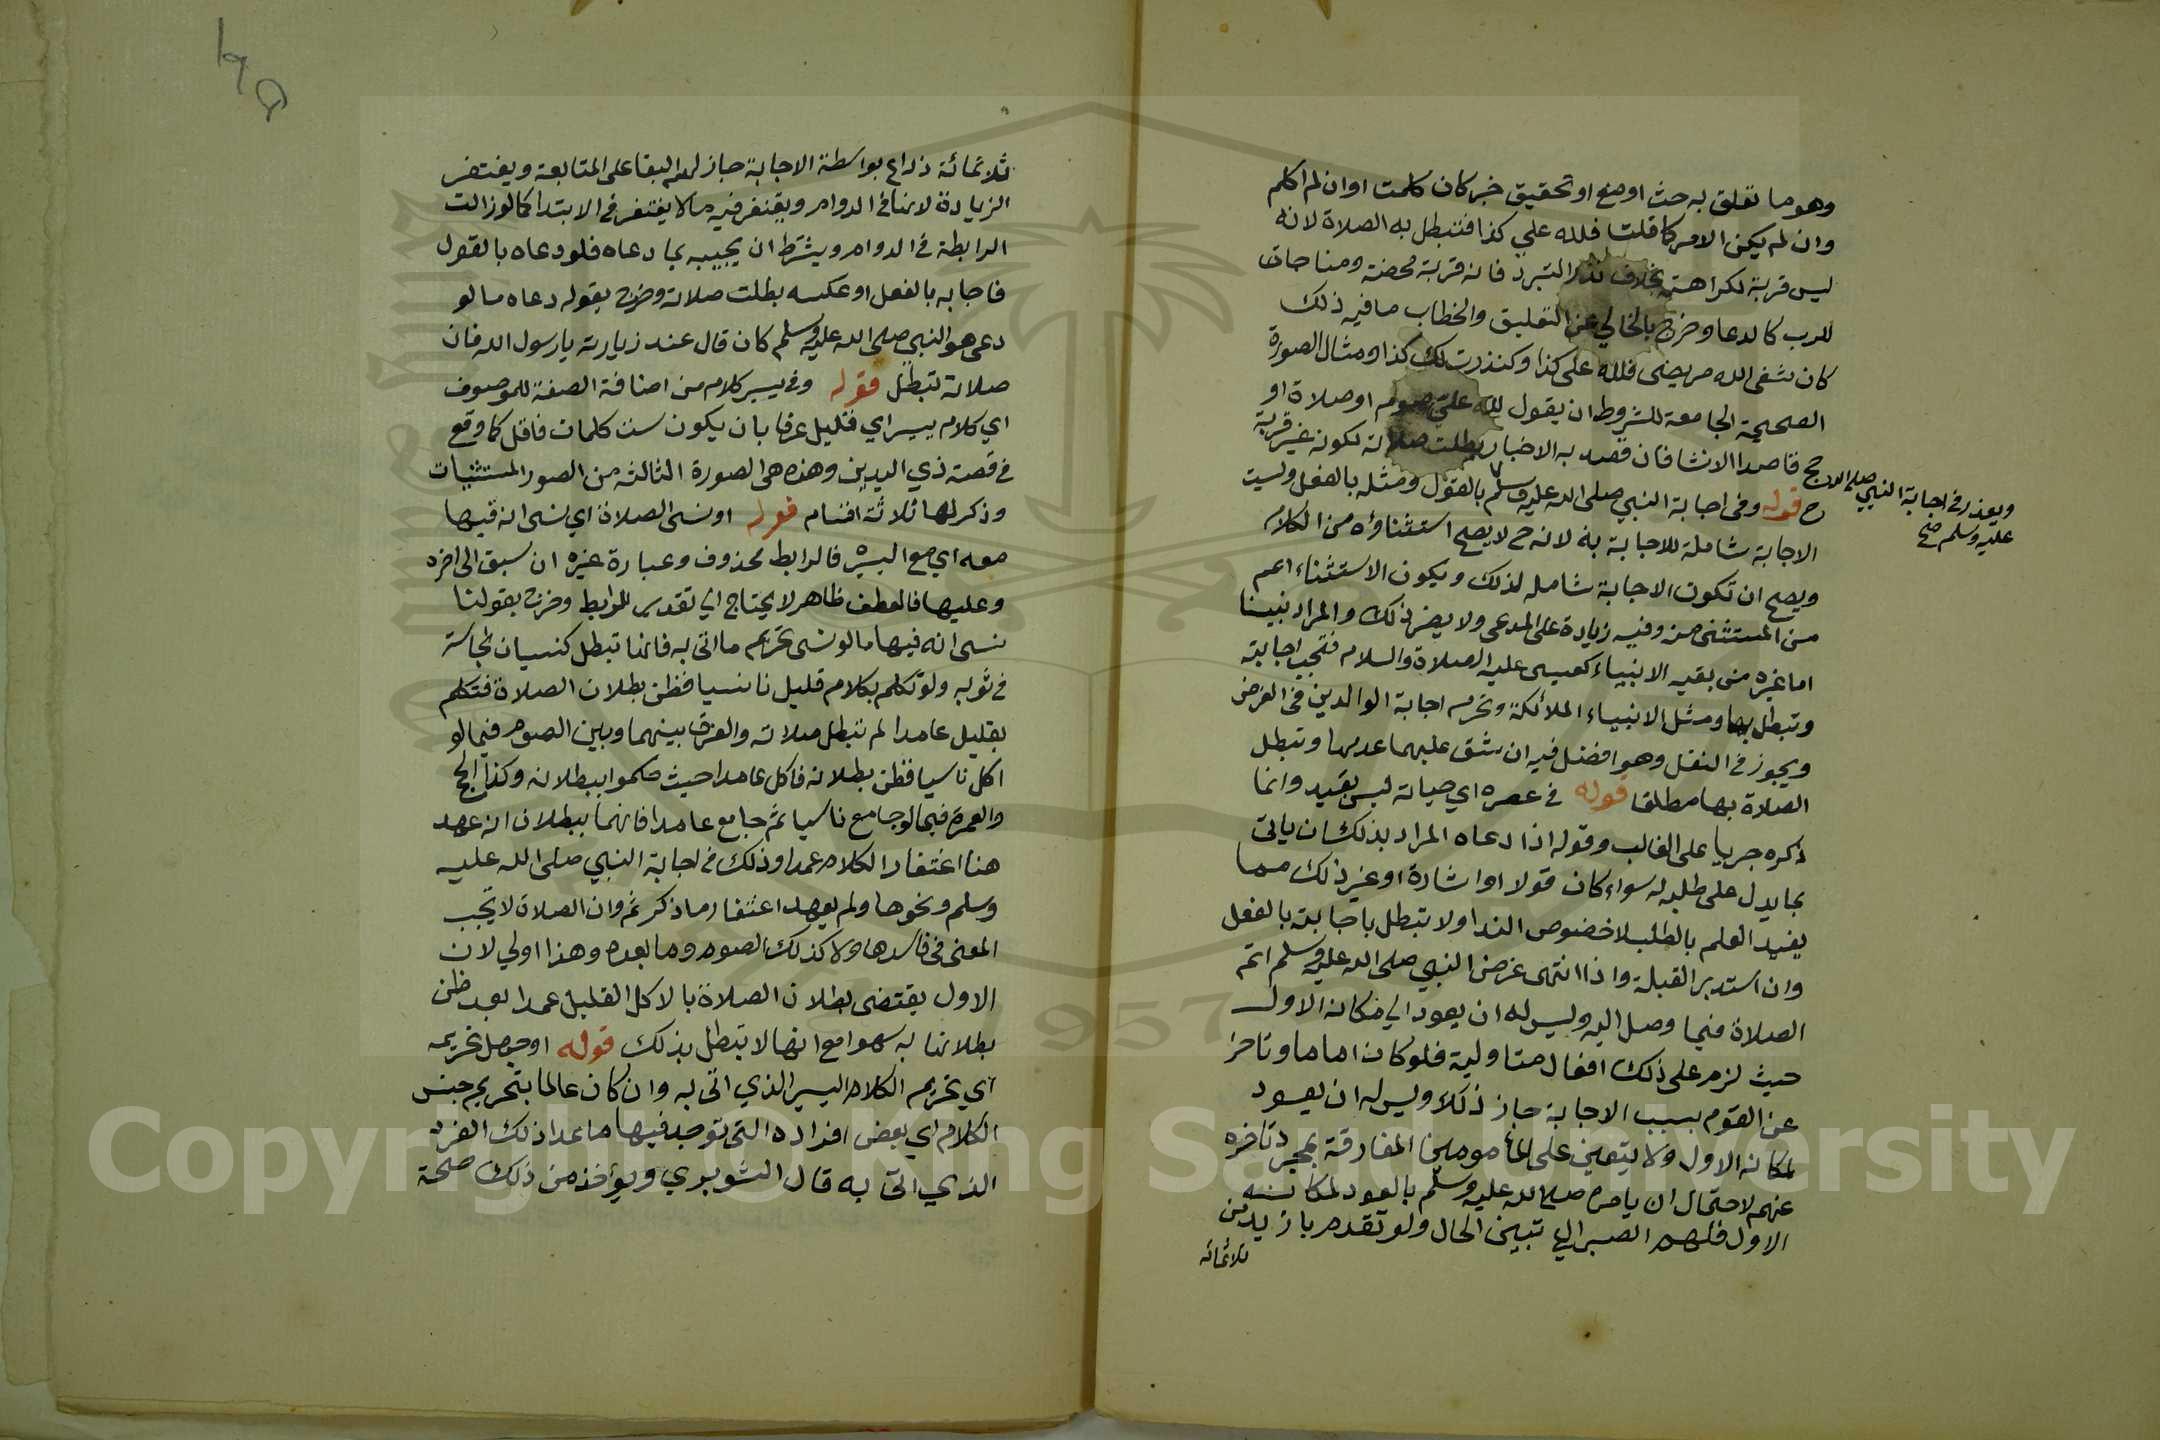 وهو ما تعلق به حث او منع او تحقيق خبر كان كلمت او ان لم اكلم
وان لم يكن الامر كما قلت فلله علي كذا فتبطل به الصلاة لانه
ليس قربة لكراهته بخلاف نذر التبرر فانه قربة محضة ومناجات
للرب كالدعا وخرج بالخالي عن التعليق والخطاب ما فيه ذلك
كان شفى الله مريضى فلله على كذا وكنذرت لك كذا ومثال الصورة
الصحيحة الجامعة للشروط ان يقول لله علي صوم او صلاة او
حج قاصدا الانشا فان قصد به الاخبار بطلت صلاته لكونه غير قربة
ح قوله وفى اجابة النبي صلى الله عليه وسلم بالقول ومثله بالفعل وليست
ويعذر فى اجابة النبي صلى الله
عليه وسلم صح
الاجابة شاملة للاجابة به لانه ح لا يصح استثناؤه من الكلام
ويصح ان تكون الاجابة شامله لذلك ويكون الاستثناء اعم
من المستثنى منه وفيه زيادة على المدعى ولا يضر ذلك والمراد نبينا
اما غيره من بقيه الانبياء كعيسى عليه الصلاة والسلام فتجب اجابته
وتبطل بها ومثل الانبياء الملائكة وتحرم اجابة الوالدين فى الفرض
ويجوز فى النفل وهو افضل فيه ان شق عليهما عدمها وتبطل
الصلاة بها مطلقا قوله فى عصره اي حياته ليس بقيد وانما
ذكره جريا على الغالب وقوله اذا دعاه المراد بذلك ان ياتى
بما يدل على طلبه له سواء كان قولا او اشارة او غير ذلك مما
يفيد العلم بالطلب لا خصوص الندا ولا تبطل باجابته بالفعل
وان استدبر القبلة واذا انتهى غرض النبي صلى الله عليه وسلم اتم
الصلاة فيما وصل اليه وليس له ان يعود الي مكانه الاول
حيث لزم على ذلك افعال متاولية فلو كان اماما وتاخر
عن القوم بسبب الاجابة جاز ذلك وليس له ان يعود
لمكانه الاول ولا يتعين على المأمومين المفارقة بمجرد تاخره
عنهم لاحتمال ان يامره صلى الله عليه وسلم بالعود لمكانه
الاول فلهم الصبر الي تبين الحال ولو تقدم بازيد من
ثلاثمائه
ثلاثمائة ذراع بواسطة الاجابة جاز لهم البقا على المتابعة ويغتفر
الزيادة لانها فى الدوام ويغتفر فيه ما لا يغتفر فى الابتدا كما لو زالت
الرابطة فى الدوام ويشترط ان يجيبه بما دعاه فلو دعاه بالقول
فاجابه بالفعل او عكسه بطلت صلاته وخرج بقوله دعاه ما لو
دعى هو النبي صلى الله عليه وسلم كان قال عند زيارته يارسول الله فان
صلاته تبطل قوله وفى يسير كلام من اضافة الصفة للموصوف
اي كلام يسير اي قليل عرفا بان يكون ست كلمات فاقل كما وقع
فى قصة ذي اليدين وهذه هى الصورة الثالثه من الصور المستثنيات
وذكر لها ثلاثة اقسام قوله او نسى الصلاة اي نسى انه فيها
معه اي مع اليسير فالرابط محذوف وعبارة غيره ان سبق الى اخره
وعليها فالعطف ظاهر لا يحتاج الي تقدير للرابط وخرج بقولنا
نسى انه فيها ما لو نسى تحريم ما اتى به فانها تبطل كنسيان نجاسة
فى ثوبه ولو تكلم بكلام قليل ناسيا فظن بطلان الصلاة فتكلم
بقليل عامدا لم تبطل صلاته والفرق بينهما وبين الصوم فيما لو
اكل ناسيا فظن بطلانه فاكل عامدا حيث حكموا ببطلانه وكذا الحج
والعمرة فيما لو جامع ناسيا ثم جامع عامدا فانهما يبطلان انه عهد
هنا اغتفار الكلام عمدا وذلك فى اجابة النبي صلى الله عليه
وسلم ونحوها ولم يعهد اغتفار ما ذكر ثم وان الصلاة لا يجب
المضى فى فاسدها ولا كذلك الصوم وما بعده وهذا اولي لان
الاول يقتضى بطلان الصلاة بالاكل القليل عمدا بعد ظن
بطلانها به سهوا مع انها لا تبطل بذلك قوله او جهل تحريمه
اي تحريم الكلام اليسير الذي اتى به وان كان عالما بتحريم جنس
الكلام اي بعض افراده التى توجد فيها ما عدا ذلك الفرد
الذي اتى به قال الشوبري ويؤخذ من ذلك صحة
Copyright © King Saud University
1957